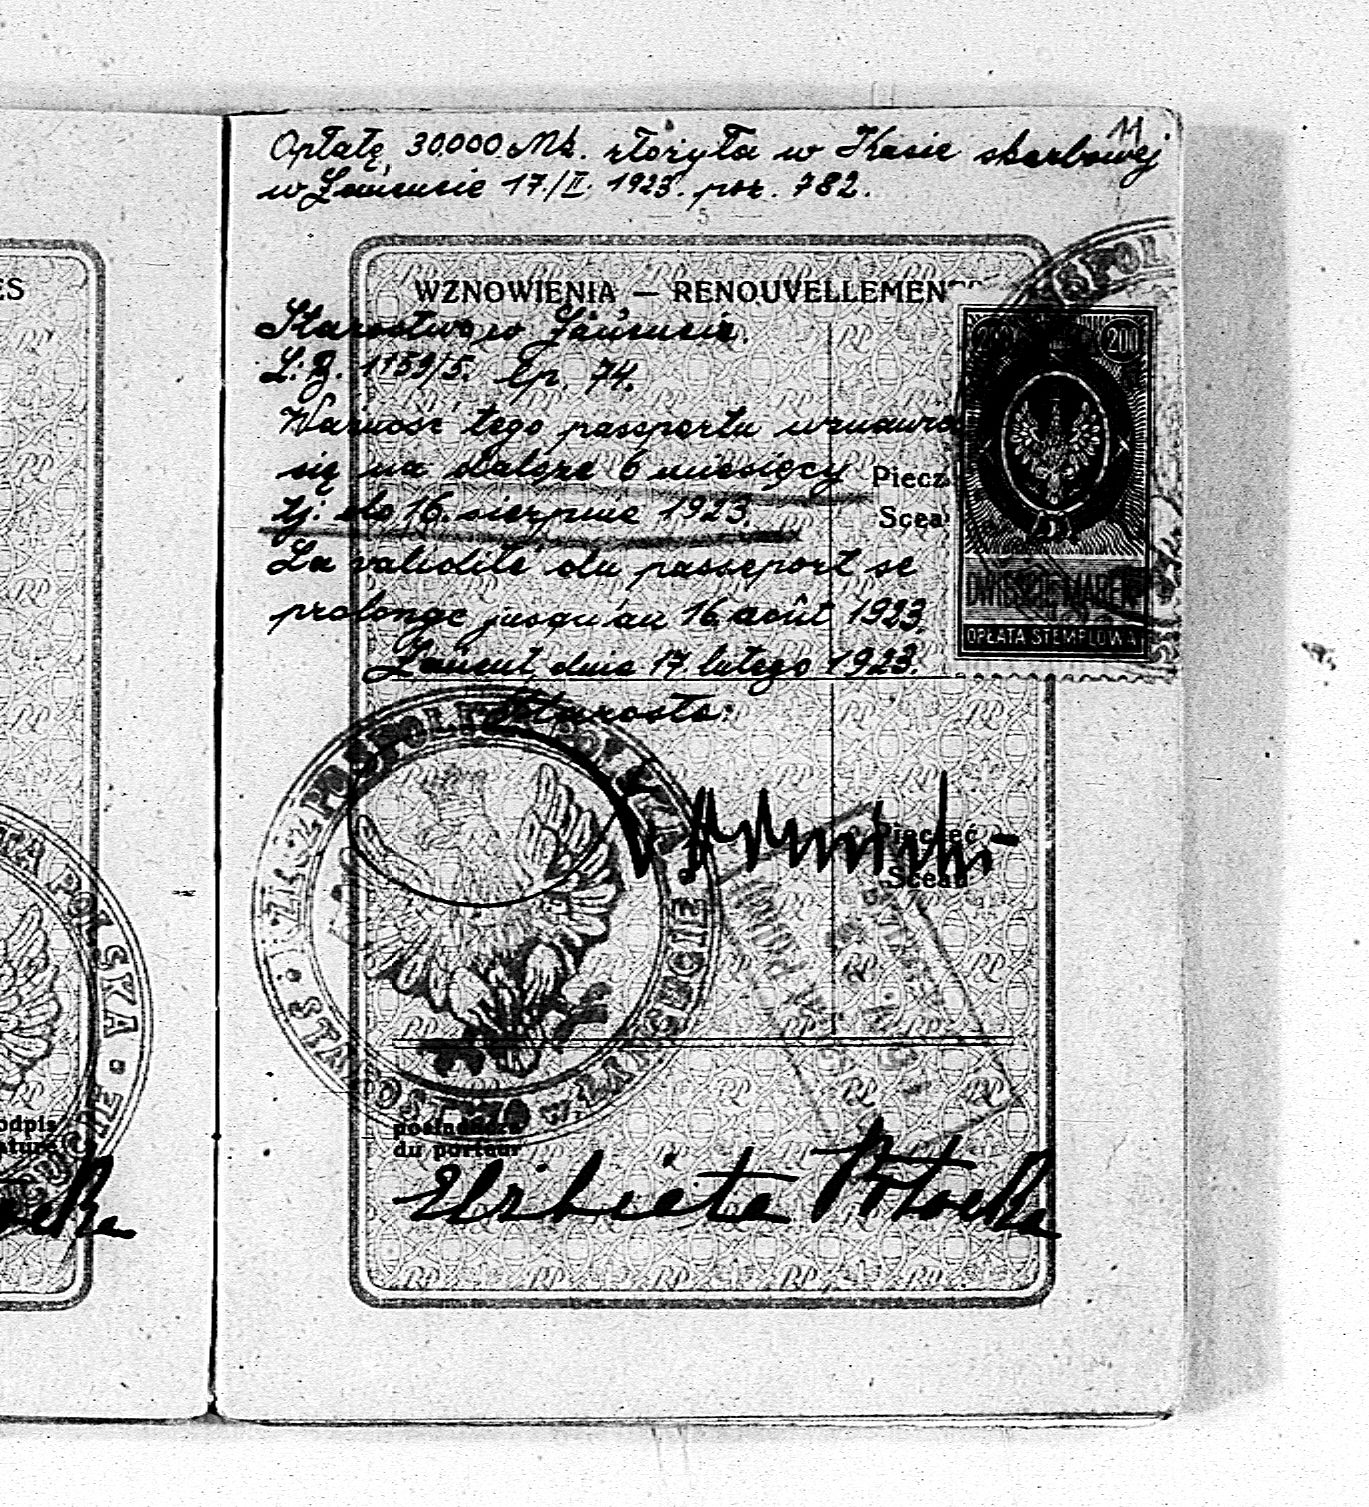 11
Opłatę 30.000 Mk. złożyła w Kasie skarbowej
w Łańcucie 17./II. 1923. poz. 782.
— 5 —
ES
WZNOWIENIA — RENOUVELLEMEN
Starostwo w Łańcucie.
L. 1159/5. lp. 74.
200
Ważność tego passportu wznawia
się na dalsze 6 miesięcy
Piecz
tj. do 16. sierpnia 1923.
Scea
La validité du passeport se
DWIEŚCIE MAREK
prolonge jusqu'au 16 août 1923.
OPŁATA STEMPLOWA
Łańcut, dnia 17 lutego 1923.
Starosta:
RZECZPOSPOLITA POLSKA
STAROSTWO w ŁAŃCUCIE
Pieczęć
Sceau
TA POLSKA
odpis
ature
posiadacza
du porteur
Elżbieta Potocka